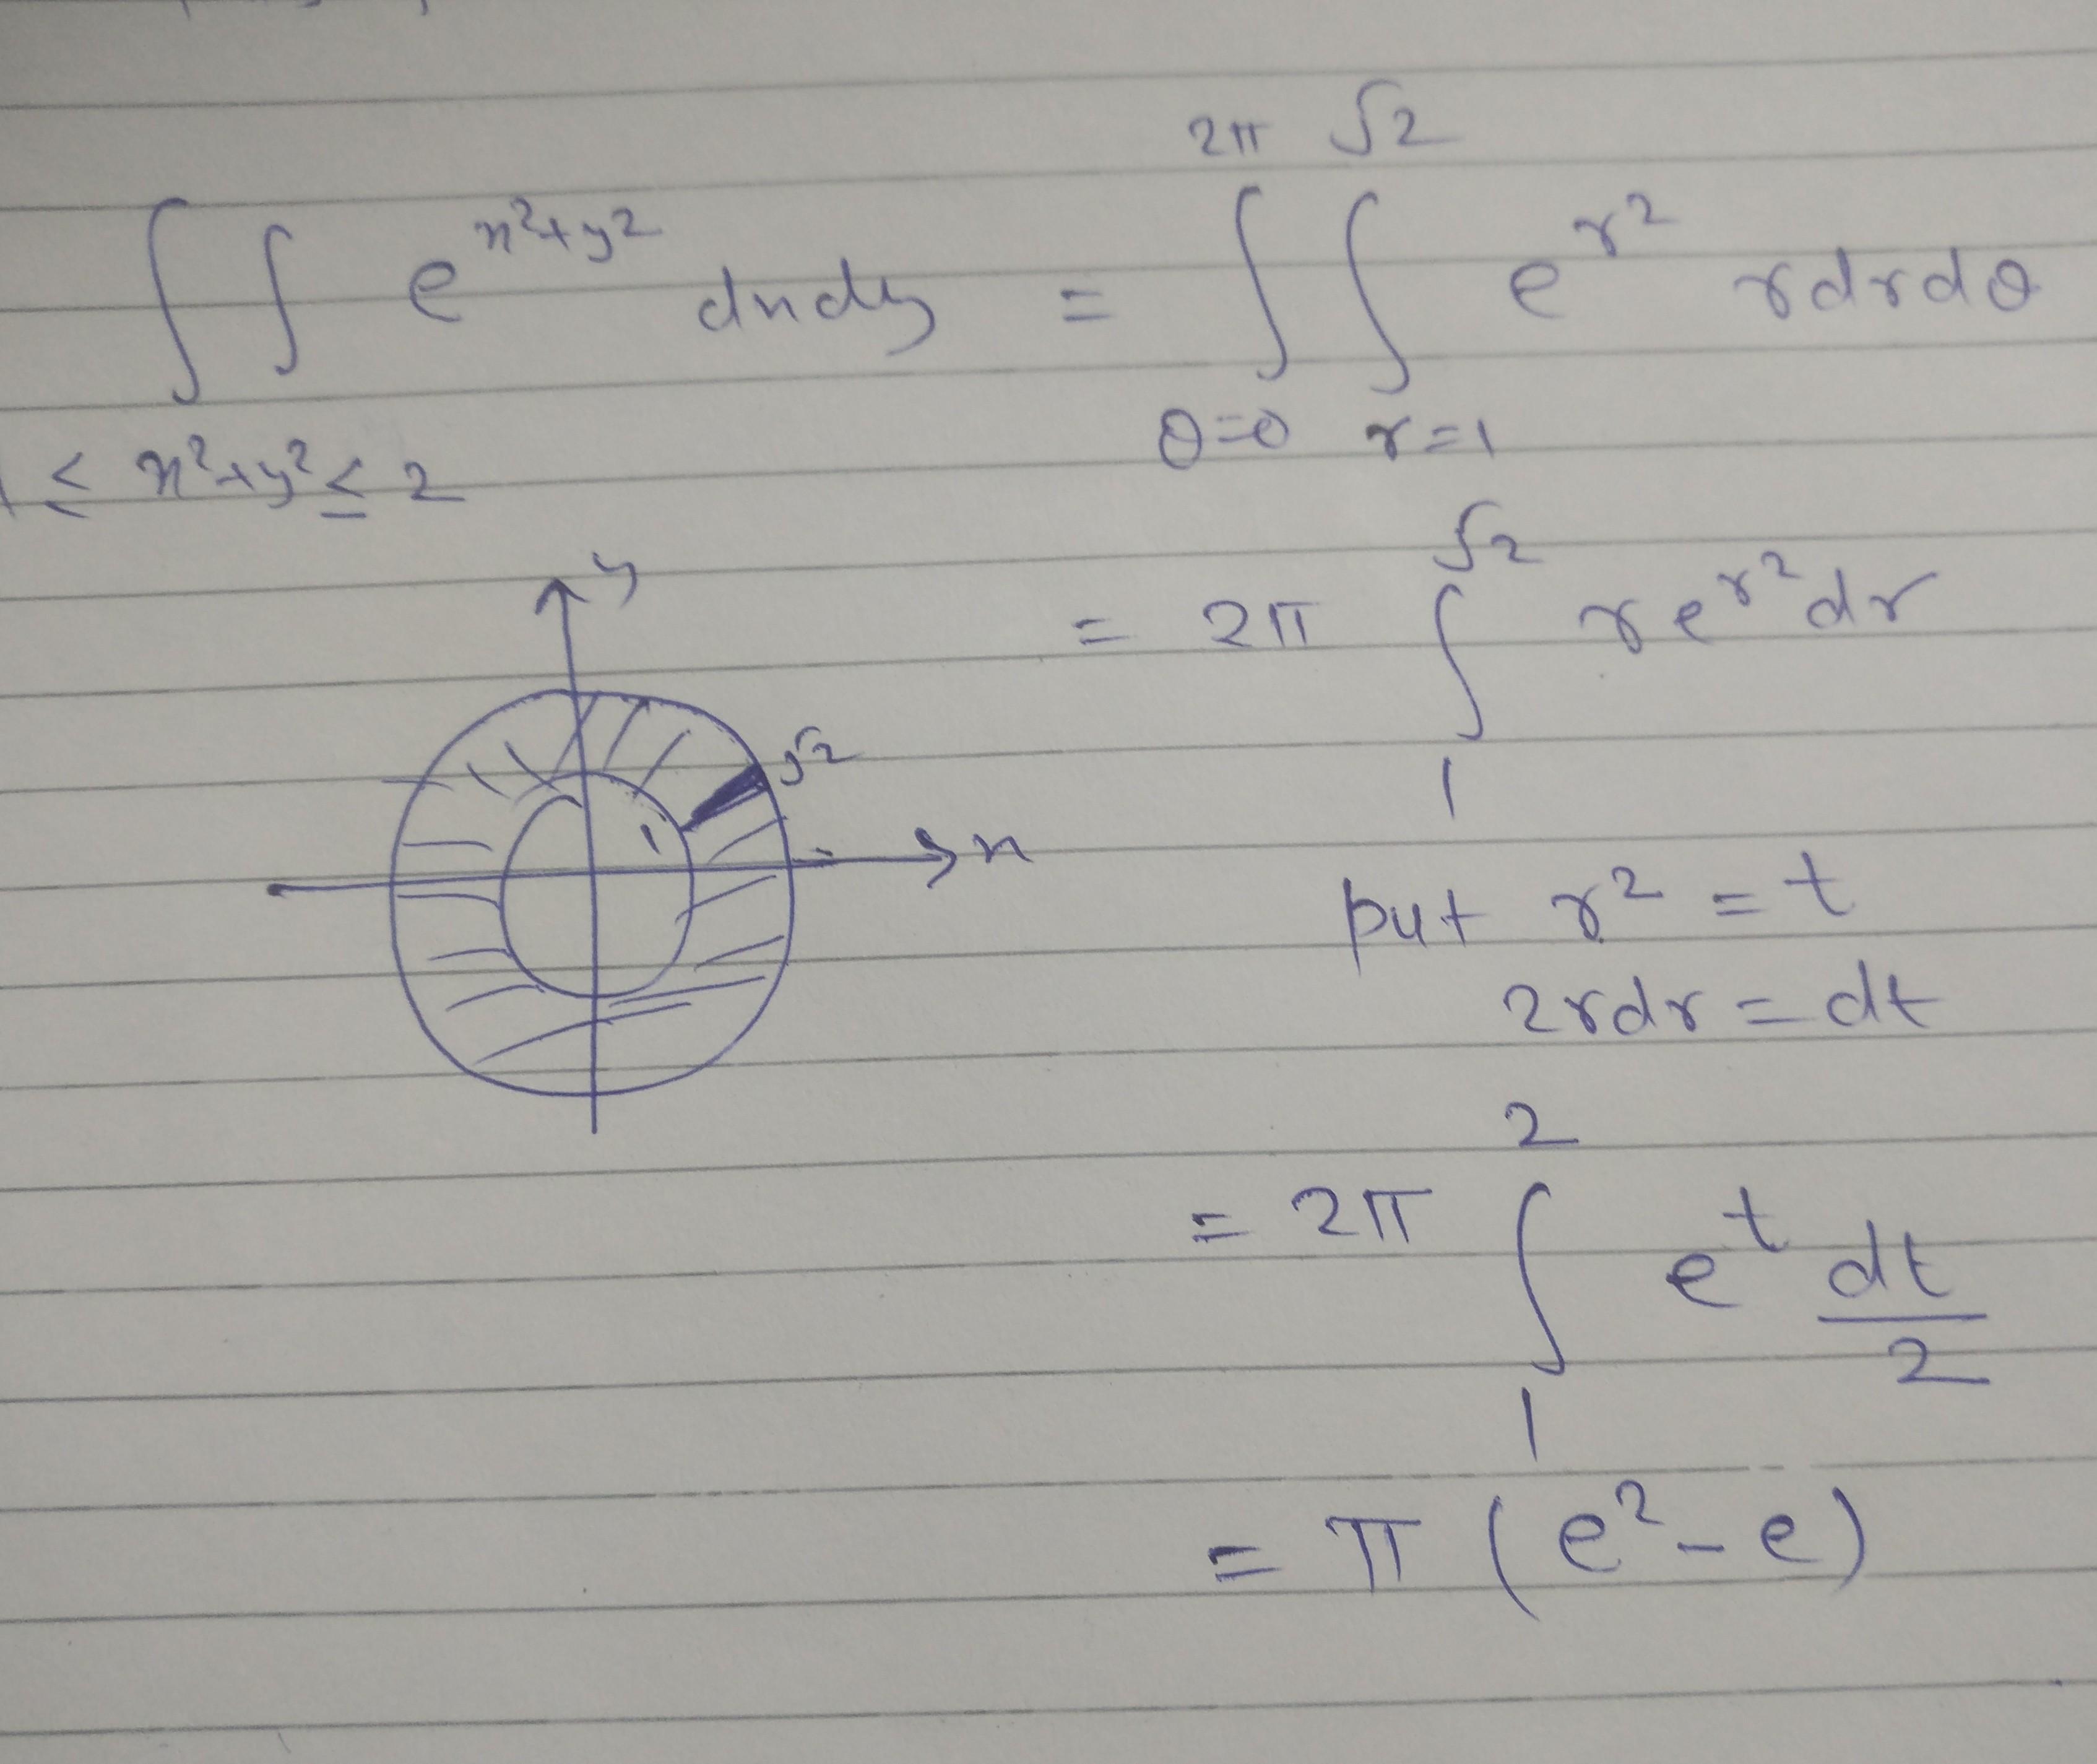 ∫∫ e^{x²+y²} dxdy = ∫_{θ=0}^{2π} ∫_{r=1}^{√2} e^{r²} r dr dθ
1 ≤ x²+y² ≤ 2
= 2π ∫_{1}^{√2} r e^{r²} dr
y
√2
1
x
put r² = t
2rdr = dt
= 2π ∫_{1}^{2} e^t dt/2
= π (e² - e)